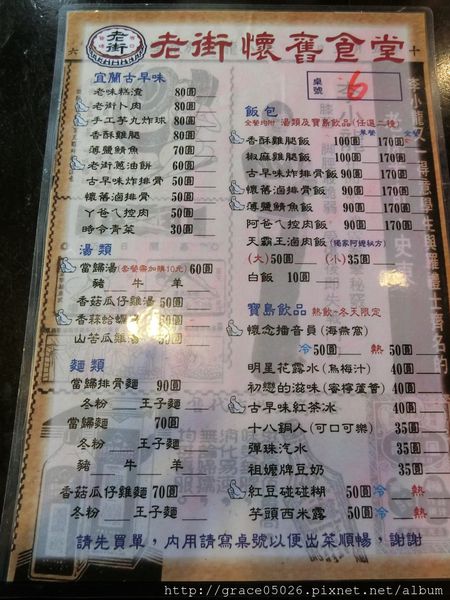 老街
老街懷舊食堂
宜蘭古早味
老味糕渣 80圓
老街卜肉 80圓
手工芋丸炸球 80圓
香酥雞腿 80圓
薄鹽鯖魚 70圓
老街蔥油餅 60圓
古早味炸排骨 50圓
懷舊滷排骨 50圓
ㄚ爸ㄟ控肉 50圓
時令青菜 30圓
湯類
當歸湯(套餐需加購10元) 60圓
豬 牛 羊
香菇瓜仔雞湯 50圓
香蒜蛤蠣
山苦瓜雞
麵類
當歸排骨麵 90圓
冬粉 王子麵
當歸麵 70圓
冬粉 王子麵
豬 牛 羊
香菇瓜仔雞麵 70圓
冬粉 王子麵
桌號 6
飯包
套餐均附 湯類及寶島飲品(任選二種)
單餐 套餐
香酥雞腿飯 100圓 170圓
椒麻雞腿飯 100圓 170圓
古早味炸排骨飯 90圓 170圓
懷舊滷排骨飯 90圓 170圓
薄鹽鯖魚飯 90圓 170圓
阿爸ㄟ控肉飯 90圓 170圓
天霸王滷肉飯 (獨家阿嬤秘方)
(大)50圓 (小)35圓
白飯 10圓
寶島飲品 熱飲·冬天限定
懷念播音員(海燕窩)
冷 50圓 熱 50圓
明星花露水(烏梅汁) 40圓
初戀的滋味(蜜檸蘆薈) 40圓
古早味紅茶冰 40圓
十八銅人(可口可樂) 35圓
彈珠汽水 35圓
祖嬤牌豆奶 35圓
紅豆碰碰糊 50圓 冷 熱
芋頭西米露 50圓 冷 熱
請先買單，內用請寫桌號以便出茶順暢，謝謝
http://grace05026.pixnet.net/album